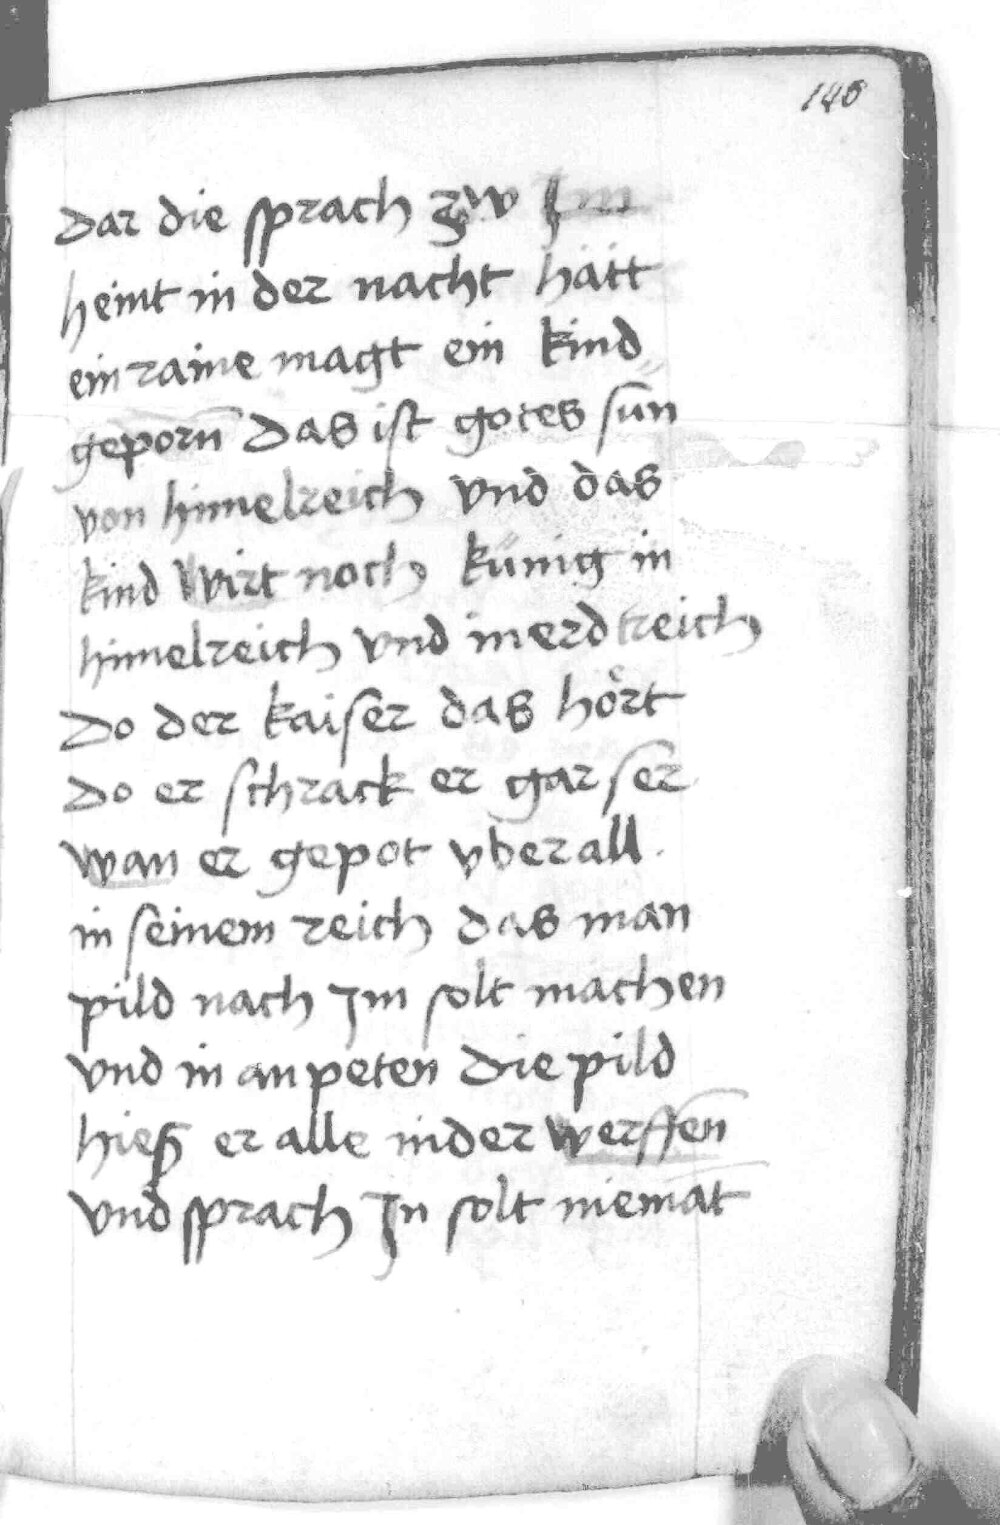 146
dar die sprach zw Im
heint in der nacht hátt
ein raine magt ein kind
geporn̄ das ist gotes sun
von himelreich vnd das
kind wirt noch künig in
himelreich vnd in erdtreich
do der kaiser das hoͤrt
do er schrack er gar ser
wan er gepot vber all.
in seinem reich das man
pild nach Im solt machen
vnd in an peten die pild
hieß er alle nider werffen
vnd sprach In solt niemāt